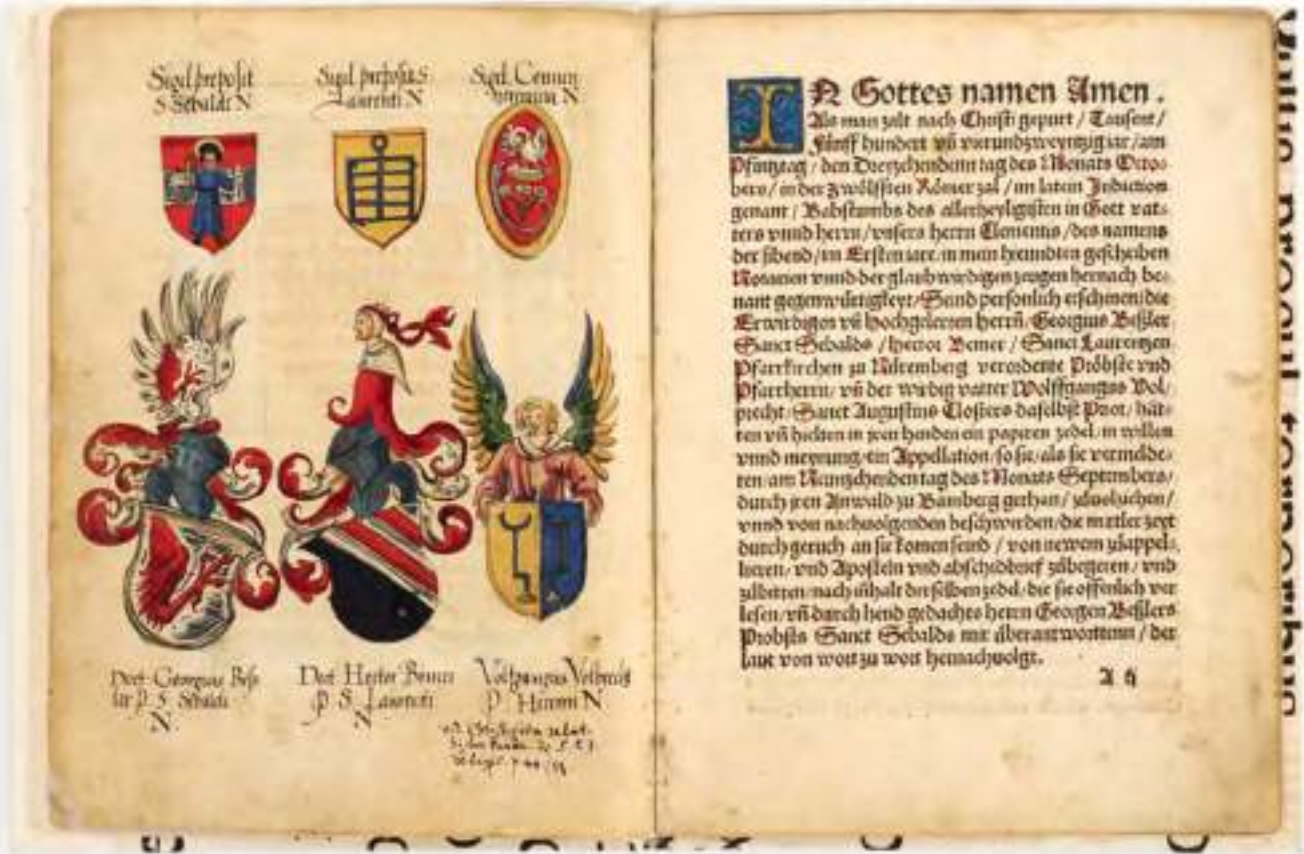 Sigil preposit
S Sebaldi N
Sigil preposit S
Laurenti N
Sigil Conuen
N
Doct Georgius Beß
ler P S Sebaldi
N
Doct Hector Bemer
P S Laurenti
N
Volfgangus Volbrecht
P N
IN Gottes namen Amen.
Als man zalt nach Christi gepurt / Tausent /
Fünff hundert vñ vierundzweyntzig iar / am
Pfintztag / den Dreyzehendenn tag des Monats Octo-
bers / in der zwölfften Römer zal / im latein Indiction
genant / Babstumbs des allerheyligisten in Gott vat-
ters vnnd herrn / vnsers herrn Clementis / des namens
der sibend / im Ersten iare, in mein hieunden geschriben
Notarien vnnd der glaubwirdigen zeugen hernach be-
nant gegenwürtigkeyt / Seind persönlich erschinen / die
Erwirdigen vñ hochgelerten herrñ / Georgius Beßler
Sanct Sebalds / Hector Bemer / Sanct Laurentzen
Pfarrkirchen zu Nüremberg verordente Pröbste vnd
Pfarrherrn / vñ der wirdig vatter Wolffgangus Vol-
precht / Sanct Augustins Closters daselbst Prior / hät-
ten vñ hielten in jren henden ein papiren zedel / in willen
vnnd meynung / ein Appellation / so sie / als sie vermelde-
ten / am Neuntzehenden tag des Monats Septembers /
durch jren Anwald zu Bamberg gethan /
vnnd von nachuolgenden beschwerden / die mitler zeyt
durch geruch an sie komen seind / von newem zůappel-
lieren / vnd Aposteln vnd abschidbrief zůbegeren / vnd
zůbitten / nach inhalt der selben zedel / die sie offenlich ver
lesen / vñ durch hend gedachts herrn Georgen Beßlers
Probsts Sanct Sebalds mir überantwortenn / der
laut von wort zu wort hernachuolgt.
A ij